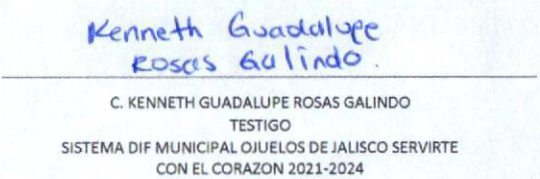 Kenneth Guadalupe
Rosas Galindo.
C. KENNETH GUADALUPE ROSAS GALINDO
TESTIGO
SISTEMA DIF MUNICIPAL OJUELOS DE JALISCO SERVIRTE
CON EL CORAZON 2021-2024